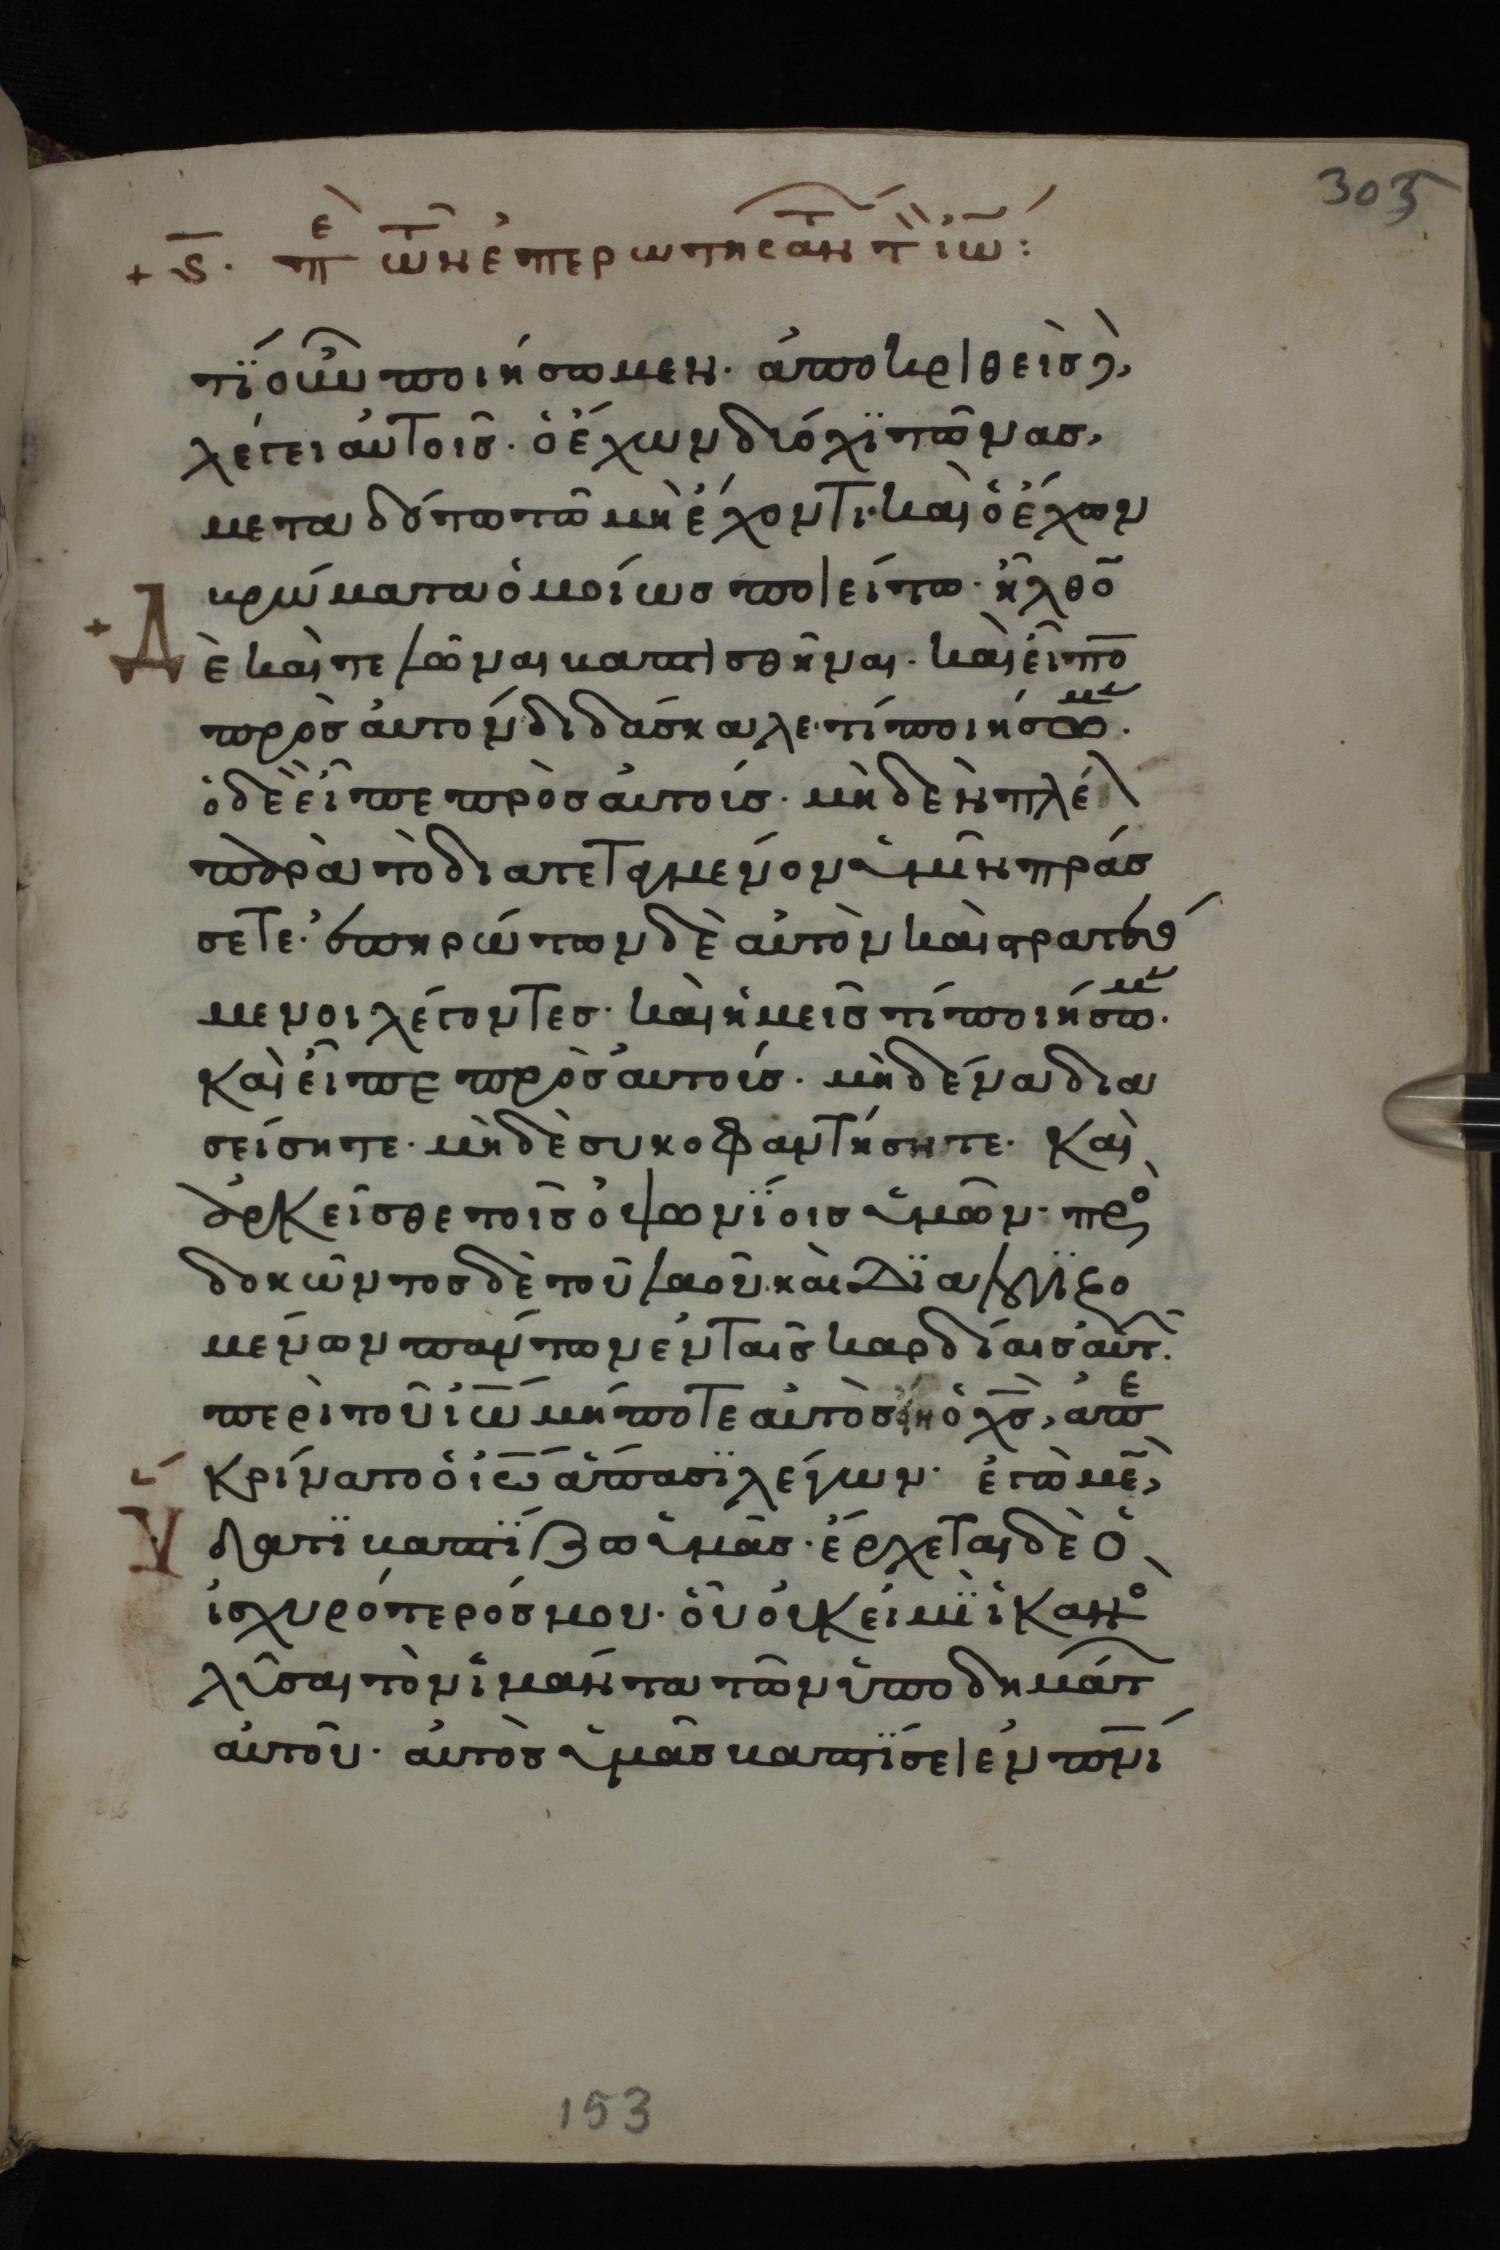 303
+ ς̅· πὲ τῶν ἐπερωτησάντ τ̀ ἰω̅:
τί οὖν ποιήσωμεν· ἀποκριθεὶς δὲ,
λέγει αὐτοῖς· ὁ ἔχων δύο χϊτῶνας,
μεταδότω τῶ μὴ ἔχοντι· καὶ ὁ ἔχων
βρώματα ὁμοίως ποιείτω· ἦλθο̅
Δὲ καὶ τελῶναι βαπτισθῆναι· καὶ εἶπο̅
πρὸς αὐτόν διδάσκαλε· τί ποιήσωμεν·
ὁ δὲ εἶπε πρὸς αὐτούς· μηδὲν πλέον
παρὰ τὸ διατεταγμένον ὑμῖν πράσ
σετε· ἐπηρώτων δὲ αὐτὸν καὶ στρατευό
μενοι λέγοντες· καὶ ἡμεῖς τί ποιήσωμεν·
καὶ εἶπε πρὸς αὐτούς· μηδένα δια
σείσητε· μηδὲ συκοφαντήσητε· καὶ
ἀρκεῖσθε τοῖς ὀψωνΐοις ὑμῶν· προσ
δοκῶντος δὲ τοῦ λαοῦ καὶ διαλογϊζο
μένων πάντων ἐν ταῖς καρδίαις αὐτ̅·
περὶ τοῦ ἰω̅ μήποτε αὐτὸς εἴη ὁ χ̅ς̅, ἀπε
κρίνατο ὁ ἰω̅ ἅπασϊ λέγων· ἐγὼ μὲ̅,
Ὑδατι βαπτίζω ὑμᾶς· ἔρχεται δὲ ὁ
ἰσχυρότερός μου· οὗ οὐκ εἰμὶ ἱκανὸς
λῦσαι τὸν ἱμάντα τῶν ὑποδημάτ
αὐτοῦ· αὐτὸς ὑμᾶς βαπτίσει ἐν πνί
153